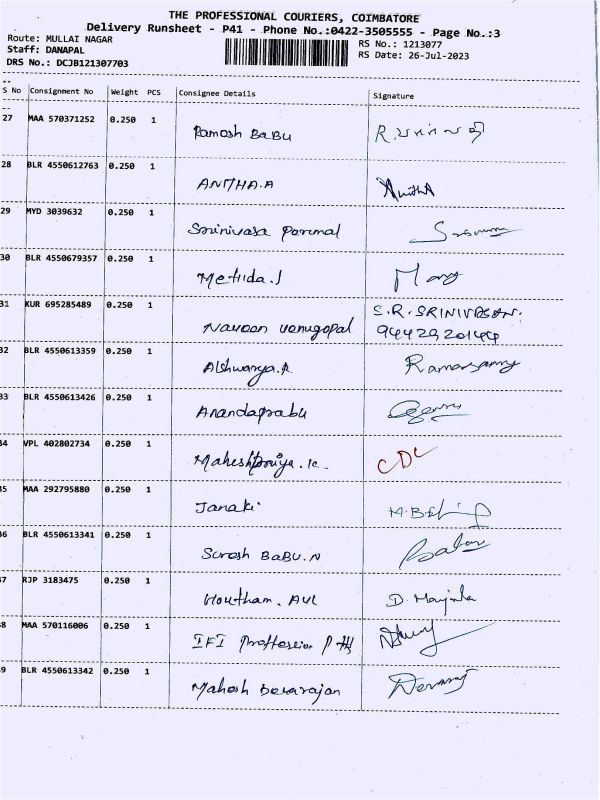 THE PROFESSIONAL COURIERS, COIMBATORE
Delivery Runsheet - P41 - Phone No.:0422-3505555 - Page No.:3
Route: MULLAI NAGAR
Staff: DANAPAL
DRS No.: DCJB121307703
RS No.: 1213077
RS Date: 26-Jul-2023
S No Consignment No Weight PCS Consignee Details Signature
27 MAA 570371252 0.250 1 Ramesh Babu
28 BLR 4550612763 0.250 1 ANITHA.A Anitha
29 MYD 3039632 0.250 1 Srinivasa Perumal
30 BLR 4550679357 0.250 1
31 KUR 695285489 0.250 1 Naveen Venugopal S.R.SRINIVASAN.
9442920144
32 BLR 4550613359 0.250 1 Aishwarya.R Ramasamy
33 BLR 4550613426 0.250 1 Anandaprabu
34 VPL 402802734 0.250 1 Maheshpriya.K
35 MAA 292795880 0.250 1 Janaki
36 BLR 4550613341 0.250 1 Suresh BABU.N
37 RJP 3183475 0.250 1 D. Manjula
38 MAA 570116006 0.250 1
39 BLR 4550613342 0.250 1 Mahesh Devarajan